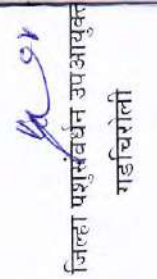 जिल्हा पशुसंवर्धन उपआयुक्त
गडचिरोली